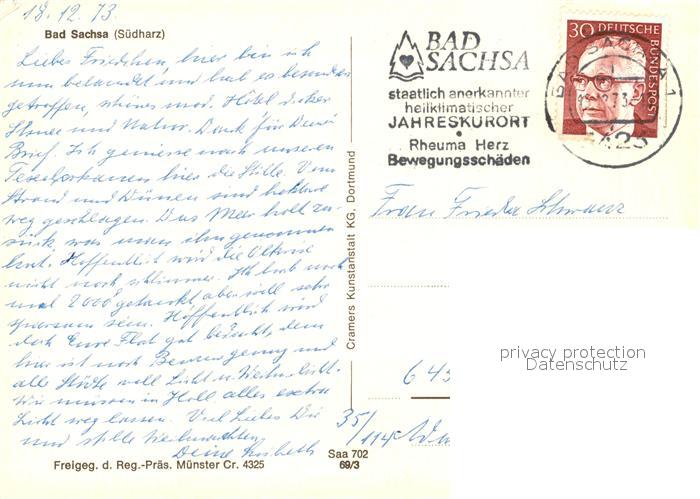 18.12.73
Bad Sachsa (Südharz)
Liebes Friedchen, hier bin ich
nun gelandet und hab es besonders
getroffen, schönes mod. Hotel, dicker
Schnee und Natur. Dank für Deinen
Brief. Ich geniesse nach unseren
hier die Stille. Vom
Strand und Dünen sind
weg geschlagen. Das Meer holt zu-
rück, was man ihm genommen
hat. Hoffentlich wird die Ölkrise
nicht noch schlimmer. Ich hab noch
mal 2000 getankt aber will sehr
sparsam sein. Hoffentlich wird
doch Eure gut, denn
hier ist noch genug und
alle Städte voll Licht u. Weihnachtl.
Wir müssen in Holl. alles extra
Licht weg lassen. Viel Liebes Dir
und stille Weihnachten
Deine
Freigeg. d. Reg.-Präs. Münster Cr. 4325
Saa 702
69/3
Cramers Kunstanstalt KG, Dortmund
BAD
SACHSA
staatlich anerkannter
heilklimatischer
JAHRESKURORT
Rheuma Herz
Bewegungsschäden
30 DEUTSCHE
BUNDESPOST
BAD SACHSA 1
3423
Frau Frieda Schwarz
645
35/
114
privacy protection
Datenschutz